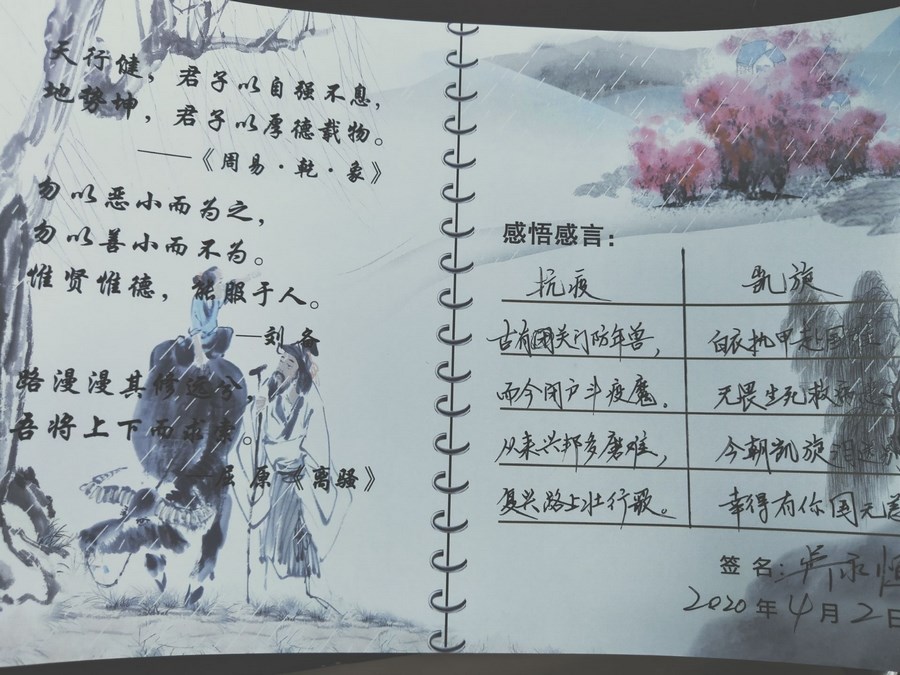 天行健，君子以自强不息，
地势坤，君子以厚德载物。
——《周易·乾·象》
勿以恶小而为之，
勿以善小而不为。
惟贤惟德，能服于人。
—刘备
路漫漫其修远兮，
吾将上下而求索。
—屈原《离骚》
感悟感言：
抗疫
古有闭关门防年兽，
而今闭户斗疫魔。
从来兴邦多磨难，
复兴路上壮行歌。
凯旋
白衣执甲赴国难
无畏生死救病患
今朝凯旋泪
幸得有你国无恙
签名：吴永恒
2020年4月2日